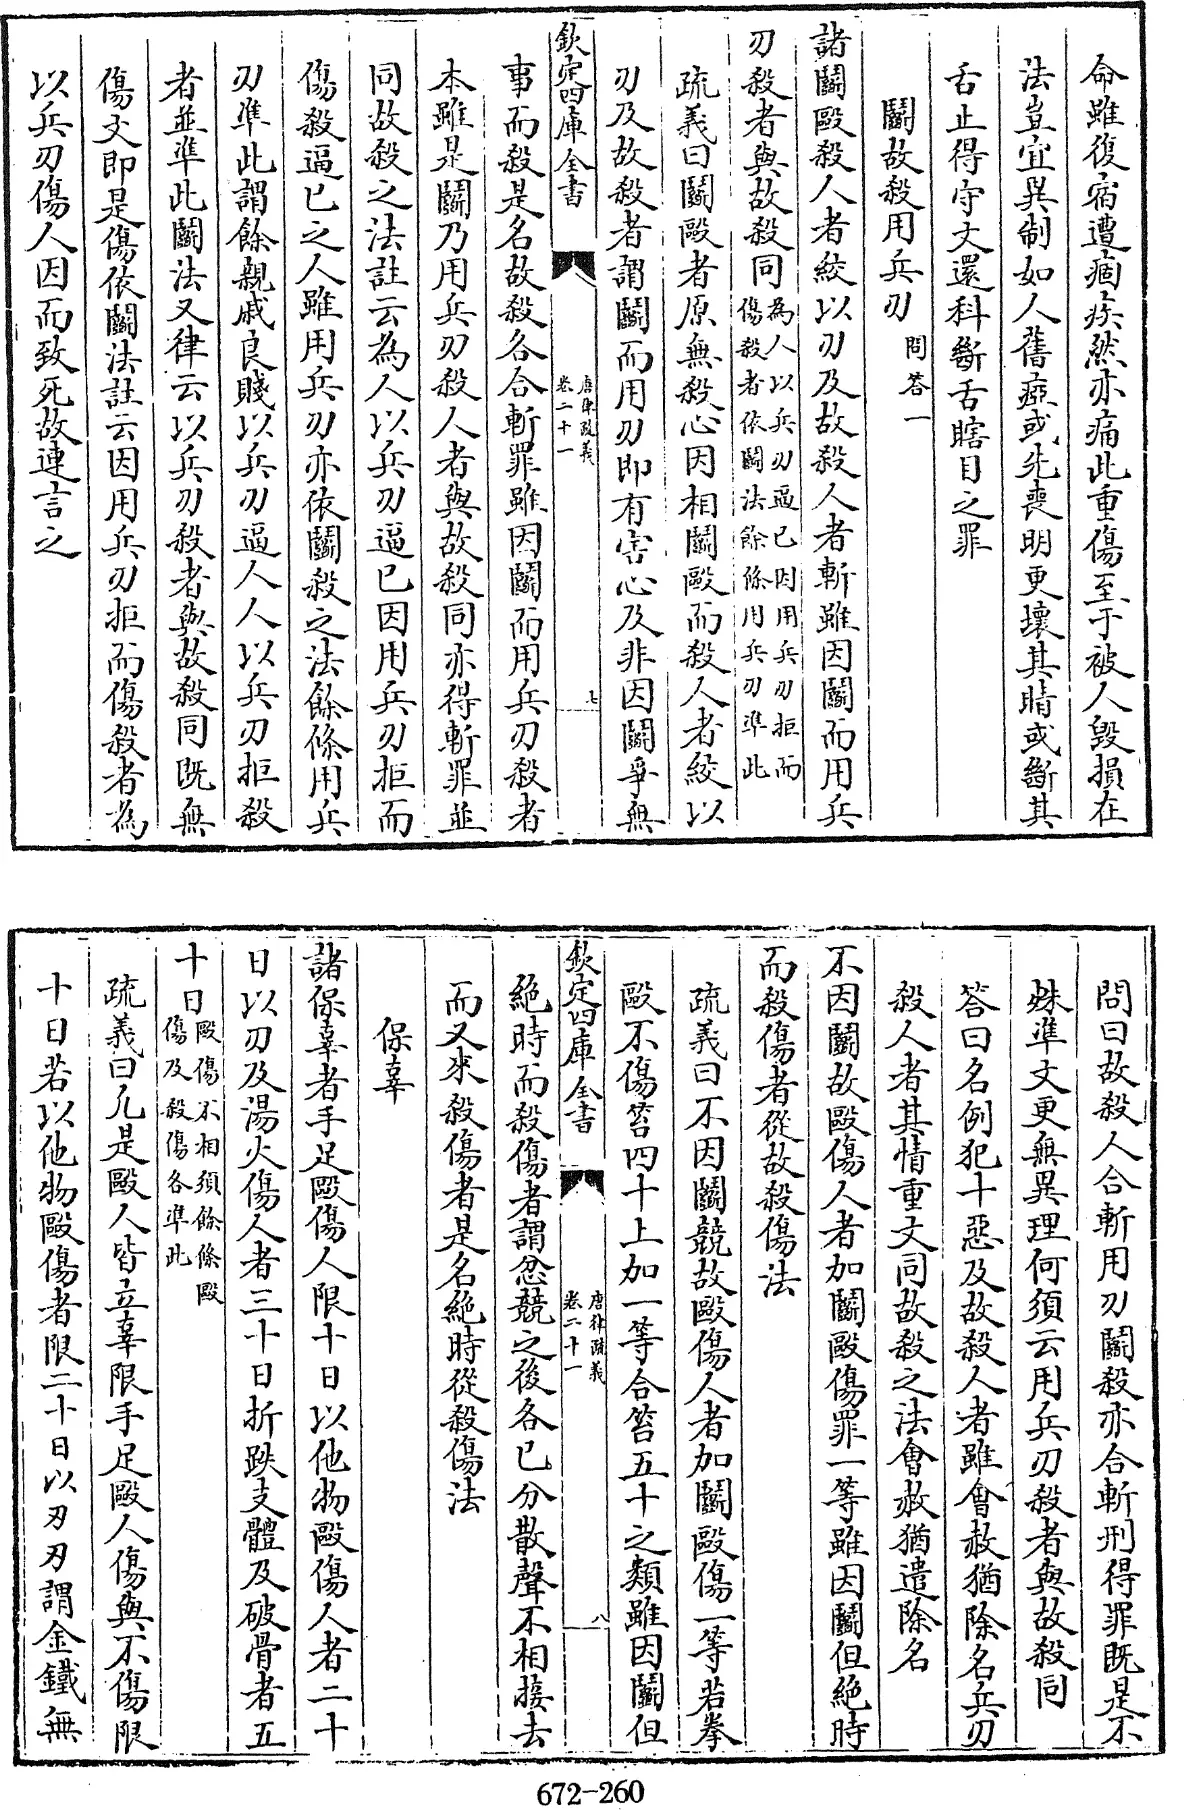 命雖復宿遭痼疾然亦痛此重傷至于被人毀損在
法豈宜異制如人舊瘂或先喪明更壞其睛或斷其
舌止得守文還科斷舌瞎目之罪
鬭故殺用兵刃 問答一
諸鬭毆殺人者絞以刃及故殺人者斬雖因鬭而用兵
刃殺者與故殺同 為人以兵刃逼己因用兵刃拒而
傷殺者依鬭法餘條用兵刃準此
疏義曰鬭毆者原無殺心因相鬭毆而殺人者絞以
刃及故殺者謂鬭而用刃即有害心及非因鬭爭無
欽定四庫全書
唐律疏義
卷二十一
七
事而殺是名故殺各合斬罪雖因鬭而用兵刃殺者
本雖是鬭乃用兵刃殺人者與故殺同亦得斬罪並
同故殺之法註云為人以兵刃逼已因用兵刃拒而
傷殺逼已之人雖用兵刃亦依鬭殺之法餘條用兵
刃準此謂餘親戚良賤以兵刃逼人人以兵刃拒殺
者並準此鬭法又律云以兵刃殺者與故殺同既無
傷文即是傷依鬭法註云因用兵刃拒而傷殺者為
以兵刃傷人因而致死故連言之
問曰故殺人合斬用刃鬭殺亦合斬刑得罪既是不
殊準文更無異理何須云用兵刃殺者與故殺同
答曰名例犯十惡及故殺人者雖會赦猶除名兵刃
殺人者其情重文同故殺之法會赦猶遣除名
不因鬭故毆傷人者加鬭毆傷罪一等雖因鬭但絶時
而殺傷者從故殺傷法
疏義曰不因鬭競故毆傷人者加鬭毆傷一等若拳
毆不傷笞四十上加一等合笞五十之類雖因鬭但
欽定四庫全書
唐律疏義
卷二十一
八
絶時而殺傷者謂忿競之後各已分散聲不相接去
而又來殺傷者是名絶時從殺傷法
保辜
諸保辜者手足毆傷人限十日以他物毆傷人者二十
日以刃及湯火傷人者三十日折跌支體及破骨者五
十日 毆傷不相須餘條毆
傷及殺傷各準此
疏義曰凡是毆人皆立辜限手足毆人傷與不傷限
十日若以他物毆傷者限二十日以刃刃謂金鐵無
672-260